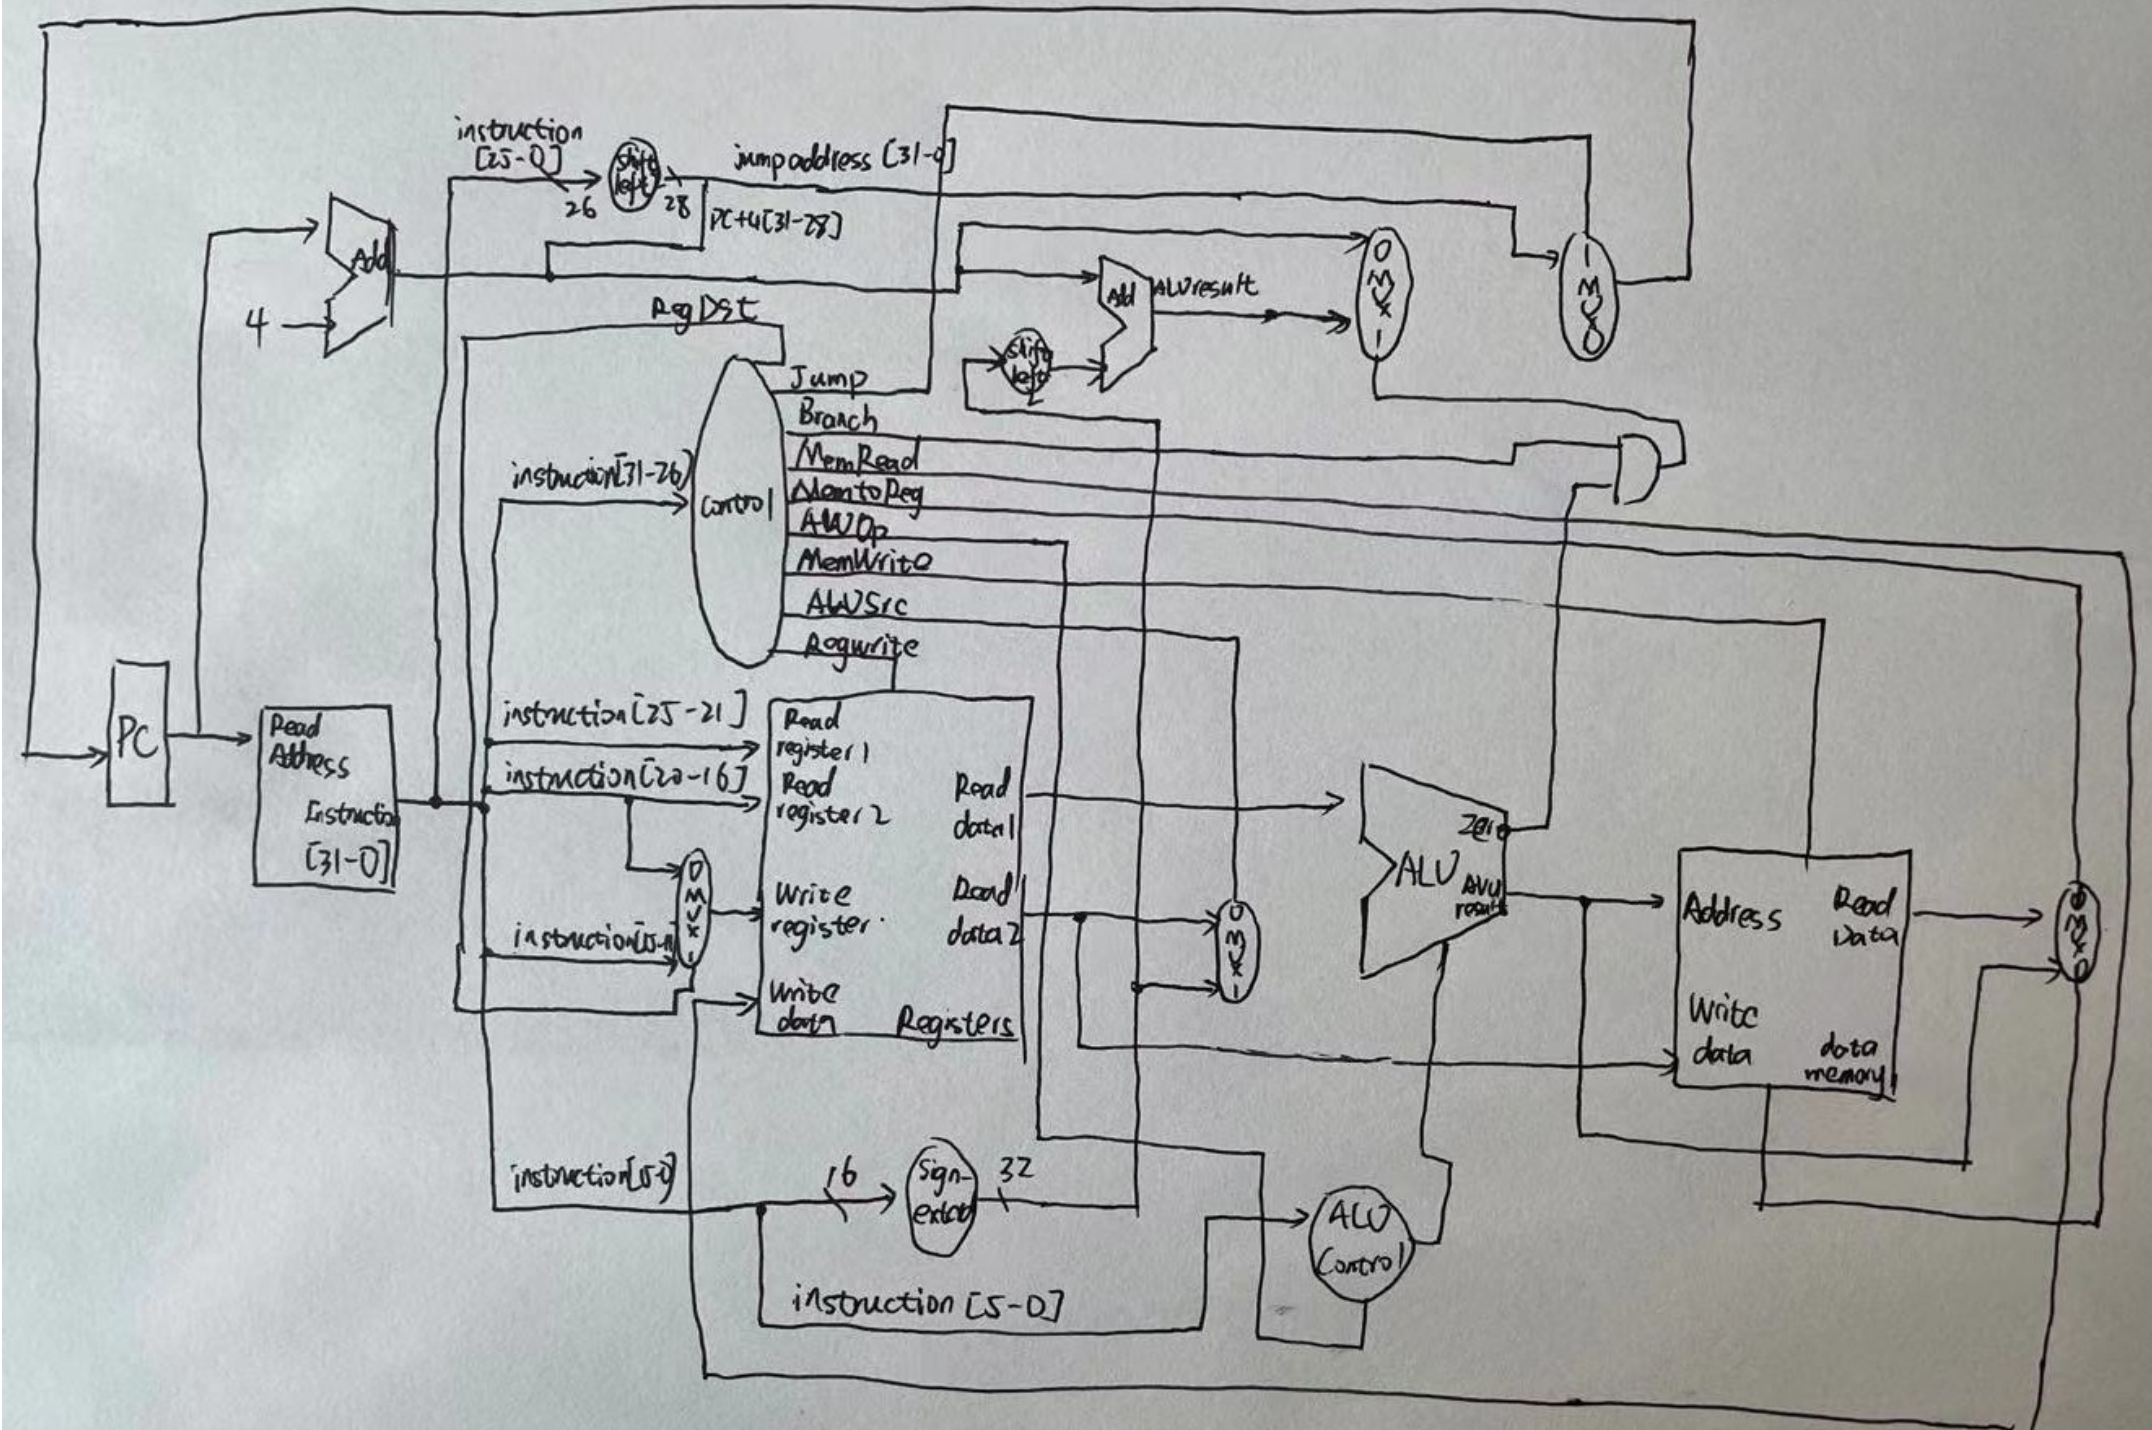 instruction
[25-0]
26
shift
left
28
jumpaddress [31-0]
PC+4[31-28]
Add
4
RegDst
Add
ALUresult
shift
left
2
0
MUX
1
1
MUX
0
Jump
Branch
MemRead
MemtoReg
ALUOp
MemWrite
ALUSrc
Regwrite
instruction[31-26]
Control
PC
Read
Address
Instruction
[31-0]
instruction[25-21]
instruction[20-16]
0
MUX
1
instruction[15-11]
Read
register1
Read
register2
Write
register
Write
data
Registers
Read
data1
Read
data2
0
MUX
1
Zero
ALU
ALU
result
Address
Read
Data
Write
data
data
memory
MUX
0
instruction[15-0]
16
Sign-
32
ALU
Control
instruction [5-0]